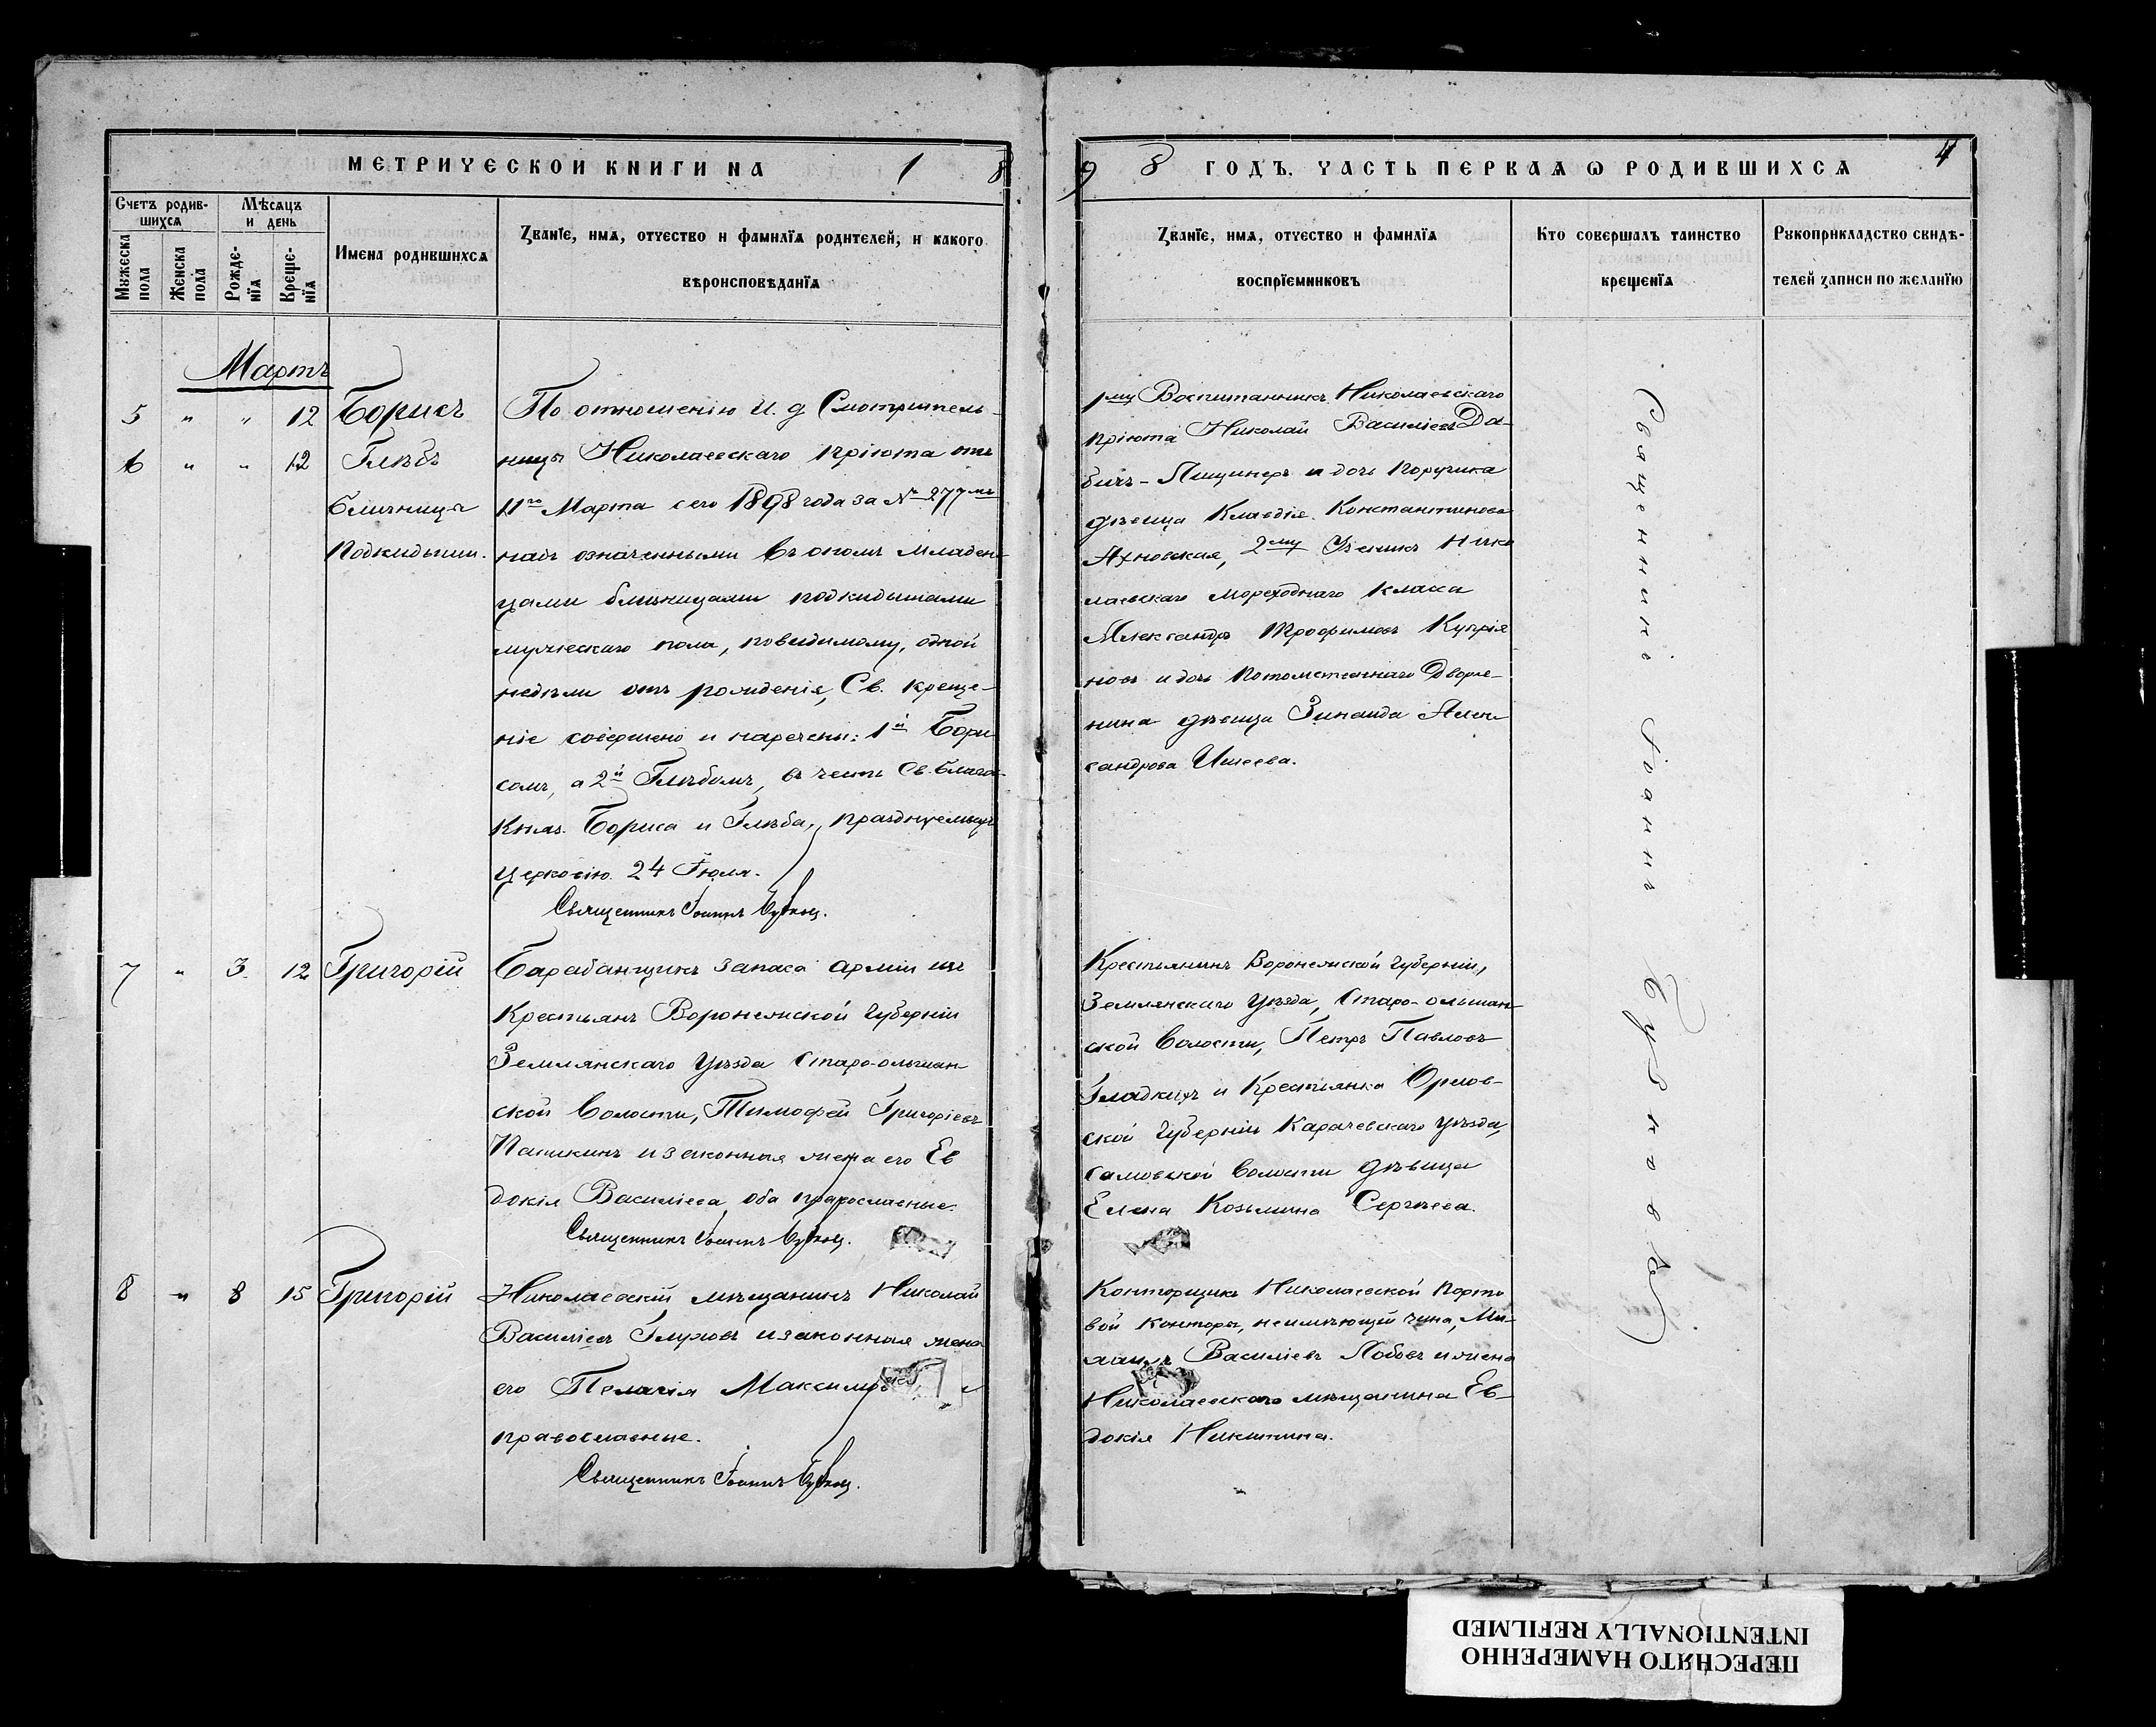 МЕТРИЧЕСКОЙ КНИГИ НА 18
98 ГОДЪ. ЧАСТЬ ПЕРВАЯ Ѡ РОДИВШИХСЯ 4
Счетъ родив-
шихся
Мѣсяцъ
и день
Мужеска
пола
Женска
пола
Рожде-
нїя
Креще-
нїя
Имена родившихся
Званїе, имя, отчество и фамилїя родителей, и какого
вѣроисповѣданїя
Званїе, имя, отчество и фамилїя
воспрїемниковъ
Кто совершалъ таинство
крещенїя
Рукоприкладство свидѣ-
телей записи по желанїю
Мартъ
5 " " 12 Борисъ
6 " " 12 Глѣбъ
близницы
подкидыши.
По отношенію И. д Смотритель-
ницы Николаевскаго пріюта отъ
11го Марта сего 1898 года за № 277мъ
надъ означенными въ ономъ младен-
цами близницами подкидышами
мужескаго пола, повидимому, одной
недѣли отъ рожденія, Св. креще-
ніе совершено и наречены: 1й Бори-
сомъ, а 2й Глѣбомъ, въ честь Св. благов.
Княз. Бориса и Глѣба, празднуемыхъ
Церковію 24 Іюля.
Священникъ Іоаннъ
1му Воспитанникъ Николаевскаго
пріюта Николай Василіевъ Да-
бичъ- и дочь поручика
дѣвица Клавдія Константинова
2му Ученикъ Нико
лаевскаго мореходнаго класа
Александръ Трофимовъ Купрія
новъ и дочь потомственнаго Дворя-
нина дѣвица Зинаида Алек-
сандрова
7 " 3. 12 Григорій
Барабанщикъ запаса арміи изъ
Крестьянъ Воронежской Губерніи
Землянскаго Уѣзда Старо-ольшан
ской Волости, Тимофей Григоріевъ
и законная жена его Ев
докія Василіева оба православные.
Священникъ Іоаннъ
Крестьянинъ Воронежской Губерніи,
Землянскаго Уѣзда, Старо-ольшан
ской Волости, Петръ Павловъ
Гладкихъ и Крестьянка Орлов-
ской Губерніи Карачевскаго Уѣзда,
Волости дѣвица
Елена Козьмина Сергѣева.
8 " 8 15 Григорій
Николаевскій мѣщанинъ Николай
Василіевъ Глуховъ и законная жена
его Пелагія
православные.
Священникъ Іоаннъ
Конторщикъ Николаевской порто
вой конторы, неимѣющій чина, Ми-
хаилъ Василіевъ и жена
Николаевскаго мѣщанина Ев-
докія Никитина.
Священникъ Іоаннъ
ПЕРЕСНЯТО НАМЕРЕННО
INTENTIONALLY REFILMED